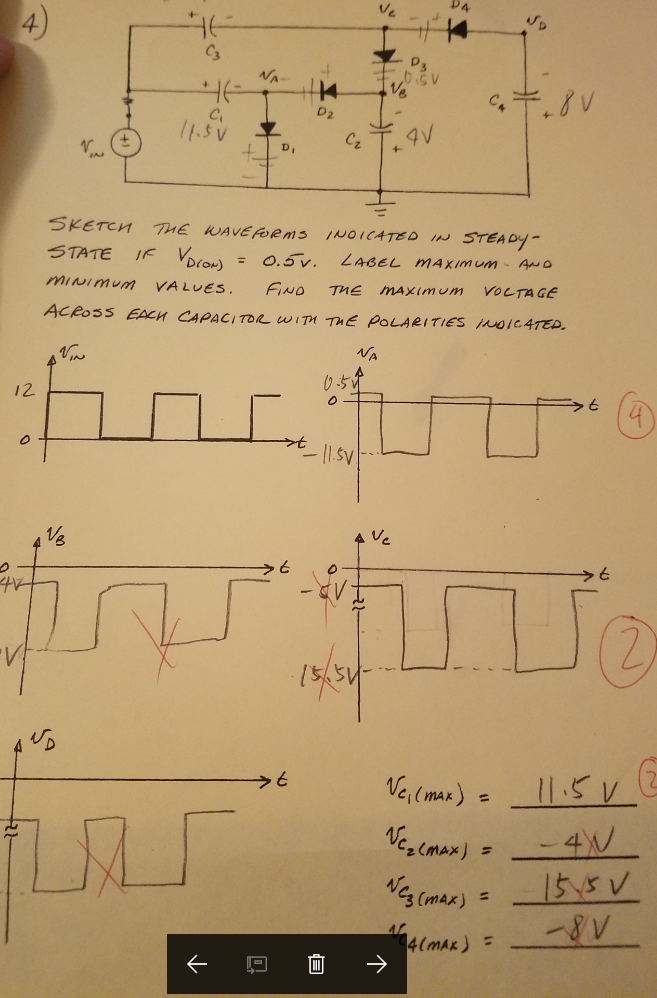 4)
+ -
C3
VC
- +
D4
VD
+ -
C1
11.5V
VA
D2
D3
0.5V
VB
C4
-
+ 8V
VIN
+
-
D1
C2
-
+ 4V
SKETCH THE WAVEFORMS INDICATED IN STEADY-
STATE IF VD(ON) = 0.5V. LABEL MAXIMUM AND
MINIMUM VALUES. FIND THE MAXIMUM VOLTAGE
ACROSS EACH CAPACITOR WITH THE POLARITIES INDICATED.
VIN
12
0
t
VA
0.5V
0
-11.5V
t
4
VB
0
4V
V
t
VC
0
V
15.5V
t
2
VD
t
VC1(MAX) = 11.5 V
VC2(MAX) = -4 V
VC3(MAX) = 15.5 V
VC4(MAX) = -8 V
2